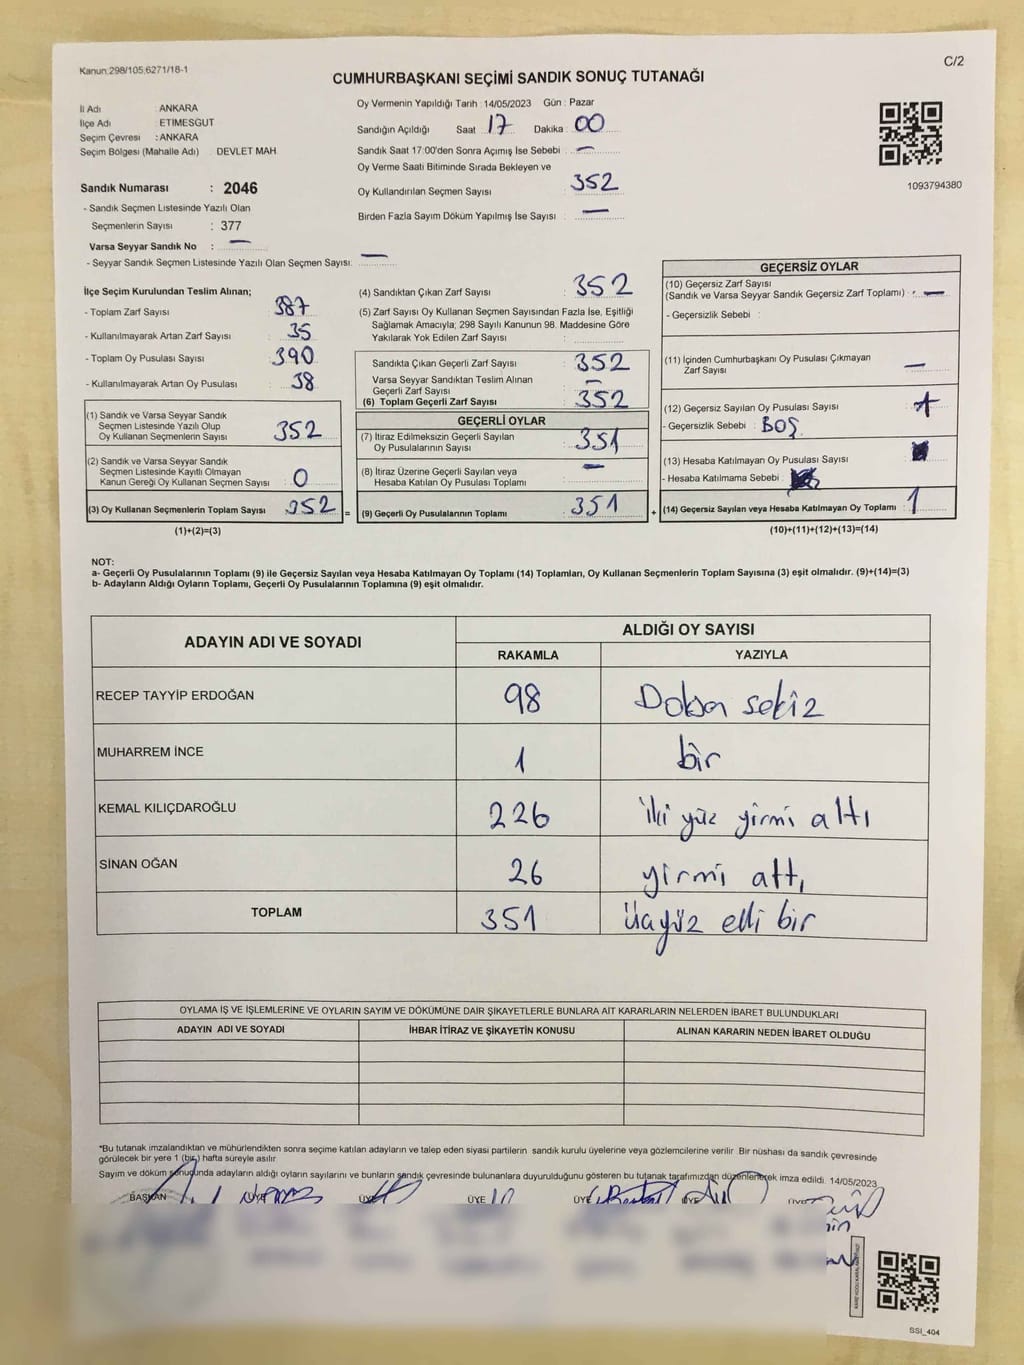 Kanun:298/105;6271/18-1
C/2
CUMHURBAŞKANI SEÇİMİ SANDIK SONUÇ TUTANAĞI
İl Adı ANKARA
İlçe Adı ETIMESGUT
Seçim Çevresi : ANKARA
Seçim Bölgesi (Mahalle Adı) : DEVLET MAH.
Sandık Numarası : 2046
- Sandık Seçmen Listesinde Yazılı Olan
Seçmenlerin Sayısı : 377
Varsa Seyyar Sandık No : —
- Seyyar Sandık Seçmen Listesinde Yazılı Olan Seçmen Sayısı: —
Oy Vermenin Yapıldığı Tarih : 14/05/2023 Gün : Pazar
Sandığın Açıldığı Saat : 17 Dakika : 00
Sandık Saat 17:00'den Sonra Açımış İse Sebebi : —
Oy Verme Saati Bitiminde Sırada Bekleyen ve
Oy Kullandırılan Seçmen Sayısı : 352
Birden Fazla Sayım Döküm Yapılmış İse Sayısı : —
1093794380
İlçe Seçim Kurulundan Teslim Alınan;
- Toplam Zarf Sayısı : 387
- Kullanılmayarak Artan Zarf Sayısı : 35
- Toplam Oy Pusulası Sayısı : 390
- Kullanılmayarak Artan Oy Pusulası : 38
(1) Sandık ve Varsa Seyyar Sandık
Seçmen Listesinde Yazılı Olup
Oy Kullanan Seçmenlerin Sayısı : 352
(2) Sandık ve Varsa Seyyar Sandık
Seçmen Listesinde Kayıtlı Olmayan
Kanun Gereği Oy Kullanan Seçmen Sayısı : 0
(3) Oy Kullanan Seçmenlerin Toplam Sayısı : 352 =
(1)+(2)=(3)
(4) Sandıktan Çıkan Zarf Sayısı : 352
(5) Zarf Sayısı Oy Kullanan Seçmen Sayısından Fazla İse, Eşitliği
Sağlamak Amacıyla; 298 Sayılı Kanunun 98. Maddesine Göre
Yakılarak Yok Edilen Zarf Sayısı :
Sandıkta Çıkan Geçerli Zarf Sayısı : 352
Varsa Seyyar Sandıktan Teslim Alınan
Geçerli Zarf Sayısı : —
(6) Toplam Geçerli Zarf Sayısı : 352
GEÇERLİ OYLAR
(7) İtiraz Edilmeksizin Geçerli Sayılan
Oy Pusulalarının Sayısı : 351
(8) İtiraz Üzerine Geçerli Sayılan veya
Hesaba Katılan Oy Pusulası Toplamı : —
(9) Geçerli Oy Pusulalarının Toplamı : 351 +
GEÇERSİZ OYLAR
(10) Geçersiz Zarf Sayısı
(Sandık ve Varsa Seyyar Sandık Geçersiz Zarf Toplamı) : —
- Geçersizlik Sebebi :
(11) İçinden Cumhurbaşkanı Oy Pusulası Çıkmayan
Zarf Sayısı —
(12) Geçersiz Sayılan Oy Pusulası Sayısı :
- Geçersizlik Sebebi : BOŞ
(13) Hesaba Katılmayan Oy Pusulası Sayısı :
- Hesaba Katılmama Sebebi :
(14) Geçersiz Sayılan veya Hesaba Katılmayan Oy Toplamı : 1
(10)+(11)+(12)+(13)=(14)
NOT:
a- Geçerli Oy Pusulalarının Toplamı (9) ile Geçersiz Sayılan veya Hesaba Katılmayan Oy Toplamı (14) Toplamları, Oy Kullanan Seçmenlerin Toplam Sayısına (3) eşit olmalıdır. (9)+(14)=(3)
b- Adayların Aldığı Oyların Toplamı, Geçerli Oy Pusulalarının Toplamına (9) eşit olmalıdır.
ADAYIN ADI VE SOYADI ALDIĞI OY SAYISI
RAKAMLA YAZIYLA
RECEP TAYYİP ERDOĞAN 98 Doksan sekiz
MUHARREM İNCE 1 bir
KEMAL KILIÇDAROĞLU 226 iki yüz yirmi altı
SİNAN OĞAN 26 yirmi altı
TOPLAM 351 üçyüz elli bir
OYLAMA İŞ VE İŞLEMLERİNE VE OYLARIN SAYIM VE DÖKÜMÜNE DAİR ŞİKAYETLERLE BUNLARA AİT KARARLARIN NELERDEN İBARET BULUNDUKLARI
ADAYIN ADI VE SOYADI İHBAR İTİRAZ VE ŞİKAYETİN KONUSU ALINAN KARARIN NEDEN İBARET OLDUĞU
*Bu tutanak imzalandıktan ve mühürlendikten sonra seçime katılan adayların ve talep eden siyasi partilerin sandık kurulu üyelerine veya gözlemcilerine verilir. Bir nüshası da sandık çevresinde
görülecek bir yere 1 (bir) hafta süreyle asılır.
Sayım ve döküm sonucunda adayların aldığı oyların sayılarını ve bunların sandık çevresinde bulunanlara duyurulduğunu gösteren bu tutanak tarafımızdan düzenlenerek imza edildi. 14/05/2023
BAŞKAN ÜYE ÜYE ÜYE ÜYE ÜYE ÜYE
SSI_404